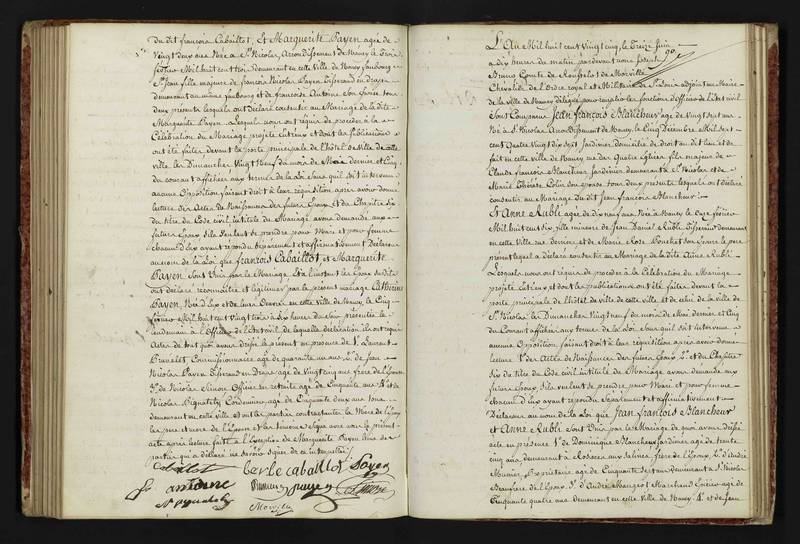 du dit françois Cabaillot, Et Marguerite Payen agée de
Vingt deux ans Née à St Nicolas, Arrondissement de Nancy le Treize
février Mil huit cent trois demeurant en cette Ville de Nancy faubourg
St Jean fille majeure de françois Nicolas Payen Tisserand en drap
demeurant au même faubourg et de françoise Antoine Son épouse tous
deux présents lesquels ont déclaré consentir au Mariage de la dite
Marguerite Payen. Lesquels nous ont requis de procéder à la
Célébration du Mariage projeté entreux et dont les publications
ont été faites devant la porte principale de l'hôtel de Ville de cette
ville les Dimanches Vingt Neuf du mois de Mai dernier et Cinq
du courant affichées aux termes de la Loi Sans quil Soit intervenu
aucune Opposition faisant droit à leur réquisition après avoir donné
lecture des Actes de Naissances des futurs Epoux et du Chapitre Six
du titre du Code civil intitulé du Mariage avons demandé aux
futurs Epoux s'ils Veulent se prendre pour Mari et pour femme
chacun d'eux ayant répondu Séparément et affirmativement Déclarons
au nom de la Loi que françois Cabaillot et Marguerite
Payen Sont Unis par le Mariage. Et à l'instant les Epoux susdits
ont déclaré reconnaître et légitimer par le présent mariage Catherine
Payen, Née d'eux et de leurs Œuvres en cette Ville de Nancy le Cinq
février Mil huit cent Vingt trois à dix heures du Soir présentée le
lendemain à l'Officier de l'Etat civil de laquelle déclaration ils ont requis
Acte de tout quoi avons dréssé le présent en présence de 1° Laurent
Brunelet Commissionnaire agé de quarante un ans 2° de Jean
Nicolas Payen Tisserand en Draps agé de Vingt cinq ans frère de l'Epouse
3° de Nicolas Simon Officier en retraite agé de Cinquante ans Et 4° de
Nicolas Bignately Cordonnier agé de Cinquante deux ans tous
demeurant en cette Ville et ont les parties contractantes la Mère de l'Epoux
les père et mère de l'Epouse et les témoins Signé avec nous le présent
acte après lecture faite à l'exception de Marguerite Payen l'une des
parties qui a déclaré ne savoir signer de ce interpellée
Cabaillot Cerle Cabaillot Payen
antoine payen Simon
Morville
L'An Mil huit cent Vingt cinq, le Treize Juin
à dix heures du matin pardevant nous Joseph
Bruno Comte de Rousselot de Morville
Chevalier de l'Ordre royal et Militaire de St Louis adjoint au Maire
de la Ville de Nancy délégué pour remplir les fonctions d'officier de l'état civil
Sont Comparus Jean françois Blancheur agé de Vingt Sept ans
Né à St Nicolas Arrondissement de Nancy, le Cinq Décembre Mil Sept
cent Quatre Vingt dix Sept Jardinier domicilié de droit au dit lieu et de
fait en cette ville de Nancy rue des Quatre Eglises fils majeur de
Claude françois Blancheur Jardinier demeurant à St Nicolas et de
Marie Thérèse Colin Son épouse tous deux présents lesquels ont déclaré
consentir au Mariage du dit Jean françois Blancheur
Et Anne Rubli agée de dix neuf ans Née à Nancy le Onze février
Mil huit cent Six fille mineure de Jean Daniel Rubli Tisserand demeurant
en cette Ville rue derrière et de Marie Rose Bouchot Son épouse le père
présent lequel a déclaré consentir au Mariage de la dite Anne Rubli.
Lesquels nous ont requis de procéder à la Célébration du Mariage
projeté entreux et dont les publications ont été faites devant la
porte principale de l'hôtel de ville de cette ville et de celui de la ville de
St Nicolas les Dimanches Vingt Neuf du mois de Mai dernier et Cinq
du Courant affichées aux termes de la Loi Sans quil Soit intervenu
aucune Opposition faisant droit à leur réquisition après avoir donné
lecture 1° des Actes de Naissances des futurs Epoux 2° et du Chapitre
Six du titre du Code civil intitulé du Mariage avons demandé aux
futurs Epoux s'ils veulent se prendre pour Mari et pour femme
chacun d'eux ayant répondu Séparément et affirmativement
Déclarons au nom de la Loi que Jean françois Blancheur
et Anne Rubli Sont Unis par le Mariage de quoi avons dréssé
acte en présence 1° de Dominique Blancheur Jardinier agé de trente
cinq ans demeurant à Rosières aux salines frère de l'Epoux 2° d'André
Munier Propriétaire agé de Cinquante Sept ans demeurant à St Nicolas
Beau frère de l'Epoux 3° d'André Mangeot Marchand Epicier agé de
Cinquante quatre ans demeurant en cette Ville de Nancy. 4° et de Jean